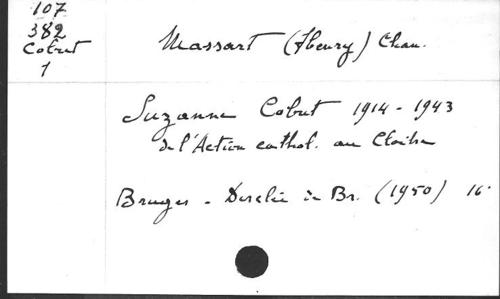 107
382
Cobut
1
Massart (Henry) Chan.
Suzanne Cobut 1914 - 1943
de l'Action cathol. au Cloître
Bruges - Desclée de Br. (1950) 16°